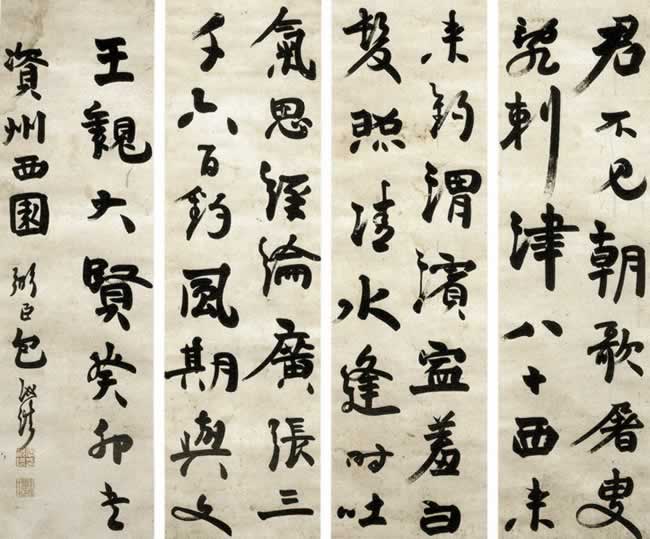 君不見朝歌屠叟
辭刺津八十西来
来釣渭濱寧羞白
髮照清水逢时吐
氣思經綸廣張三
千六百釣風期與文
王親大賢癸卯书
資州西園 弼臣包汝諧